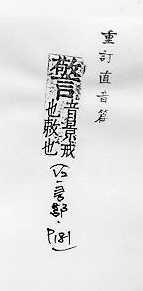 重訂直音篇
警音景戒
也敕也
(℃.言部.
P181)